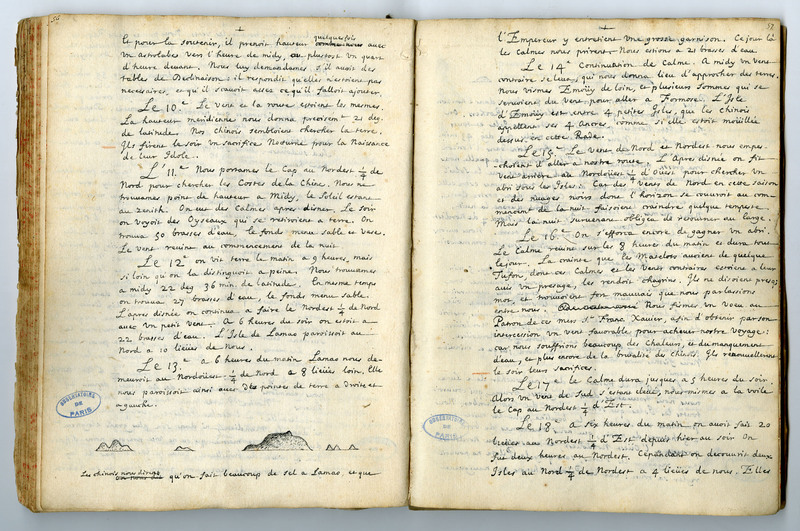 56
quelquesfois
et pour la soutenir, il prenoit hauteur comme nous avec
un astrolabe vers l'heure de midy, ou plustost un quart
d'heure devant. Nous luy demandames s'il avoit des
tables de Declinaison: il respondit qu'elles n'estoient pas
necessaires, et qu'il scavoit assez ce qu'il falloit ajouter.
Le 10.e Le vent et la route estoient les mesmes.
La hauteur meridienne nous donna precisem.t 21 deg.
de latitude. Nos chinois sembloient chercher la terre.
Ils firent le soir un sacrifice Nocturne pour la Naissance
de leur Idole.
L'11.e Nous portames le Cap au Nordest 1/4 de
Nord pour chercher les Costes de la Chine. Nous ne
trouvames point de hauteur a Midy, le Soleil estant
au Zenith. On eut des Calmes apres disner. Le soir
on voyoit des Oyseaux qui se retiroient a terre. On
trouva 50 brasses d'eau, le fonds menu sable et vase.
Le vent revint au commencement de la nuit.
Le 12.e on vit terre le matin a 9 heures, mais
si loin qu'on la distinguoit a peine. Nous trouvames
a midy 22 deg 36 min. de latitude. En mesme temps
on trouva 27 brasses d'eau, le fonds menu sable.
L'apres disnée on continua a faire le Nordest 1/4 de Nord
avec un petit vent. A 6 heures du soir on estoit a
22 brasses d'eau. L'Isle de Lamao paroissoit au
Nord a 10 lieües de nous.
Le 13.e a 6 heures du matin Lamao nous de-
meuroit au Nordoüest 1/4 de Nord a 8 lieües loin. Elle
nous paroissoit ainsi avec des pointes de terre a droite et
a gauche.
OBSERVATOIRE DE PARIS
Les chinois nous dirent
on nous dit qu'on fait beaucoup de sel a Lamao, et que
57
l'Empereur y entretient une grosse garnison. Ce jour la
les Calmes nous prirent. Nous estions a 21 brasses d'eau.
Le 14.e Continuation de Calme. A midy un vent
contraire se leva, qui nous donna lieu d'approcher des terres.
Nous vismes Emoüy de loin, et plusieurs Sommes qui se
servoient du vent pour aller a Formose. L'Isle
d'Emoüy est entre 4 petites Isles, que les chinois
appellent ses 4 Ancres, comme si elle estoit moüillée
dessus, en cette Rade.
Le 15.e Le vent de Nord et Nordest nous empes-
choient d'aller a nostre route. L'Apres disnée on fit
vent arriere au Nordoüest 1/4 d'Ouest pour chercher un
abri sous les Isles: Car des Vents de Nord en cette saison
et des nuages noirs dont l'horizon se couvroit au com-
mencem.t de la nuit faisoient craindre quelque tempeste.
Mais la nuit survenant obligea de retourner au large.
Le 16.e On s'efforça encore de gagner un abri.
Le Calme revint sur les 8 heures du matin et dura tout
le jour. La crainte que les Matelots avoient de quelque
Tufon, dont ces Calmes et les vents contraires estoient a leur
avis un presage, les rendoit chagrins. Ils ne disoient presq;
mot, et trouvoient fort mauvais que nous parlassions
entre nous. Nous fismes un voeu au
Patron de ces mers S.t Franc. Xavier, afin d'obtenir par son
intercession un vent favorable pour achever nostre voyage:
car nous souffrions beaucoup des Chaleurs, et du manquement
d'eau, et plus encore de la brutalité des Chinois. Ils renouvellerent
le soir leurs sacrifices.
Le 17.e le Calme dura jusques a 5 heures du soir.
Alors un vent de Sud s'estant elevé, nous mismes a la voile
le Cap au Nordest 1/4 d'Est.
Le 18.e A six heures du matin on avoit fait 20
lieües au Nordest 1/4 d'Est depuis hier au soir. On
fut deux heures au Nordest. Cependant on decouvrit deux
Isles au Nord 1/4 de Nordest a 4 lieües de nous. Elles
OBSERVATOIRE DE PARIS